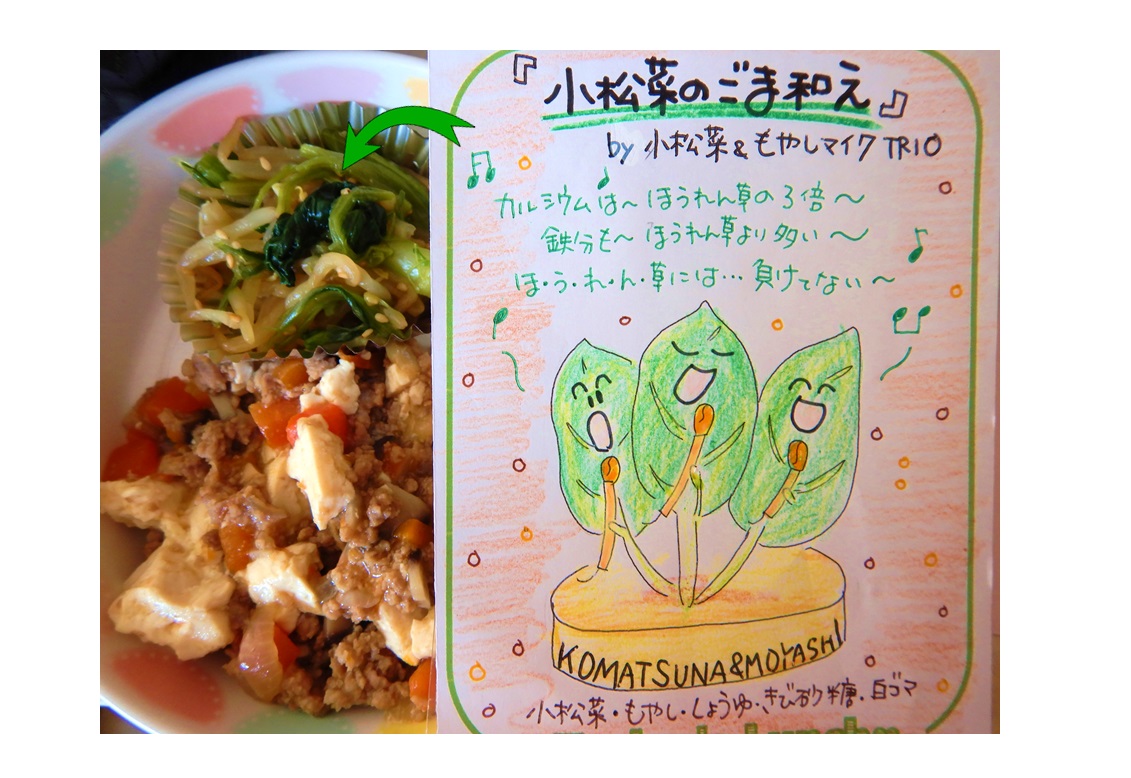 『小松菜のごま和え』
by 小松菜&もやしマイクTRIO
カルシウムは〜ほうれん草の3倍〜
鉄分も〜ほうれん草より多い〜
ほ・う・れ・ん・草には…負けてない〜
KOMATSUNA&MOYASHI
小松菜・もやし・しょうゆ・きび砂糖・白ゴマ